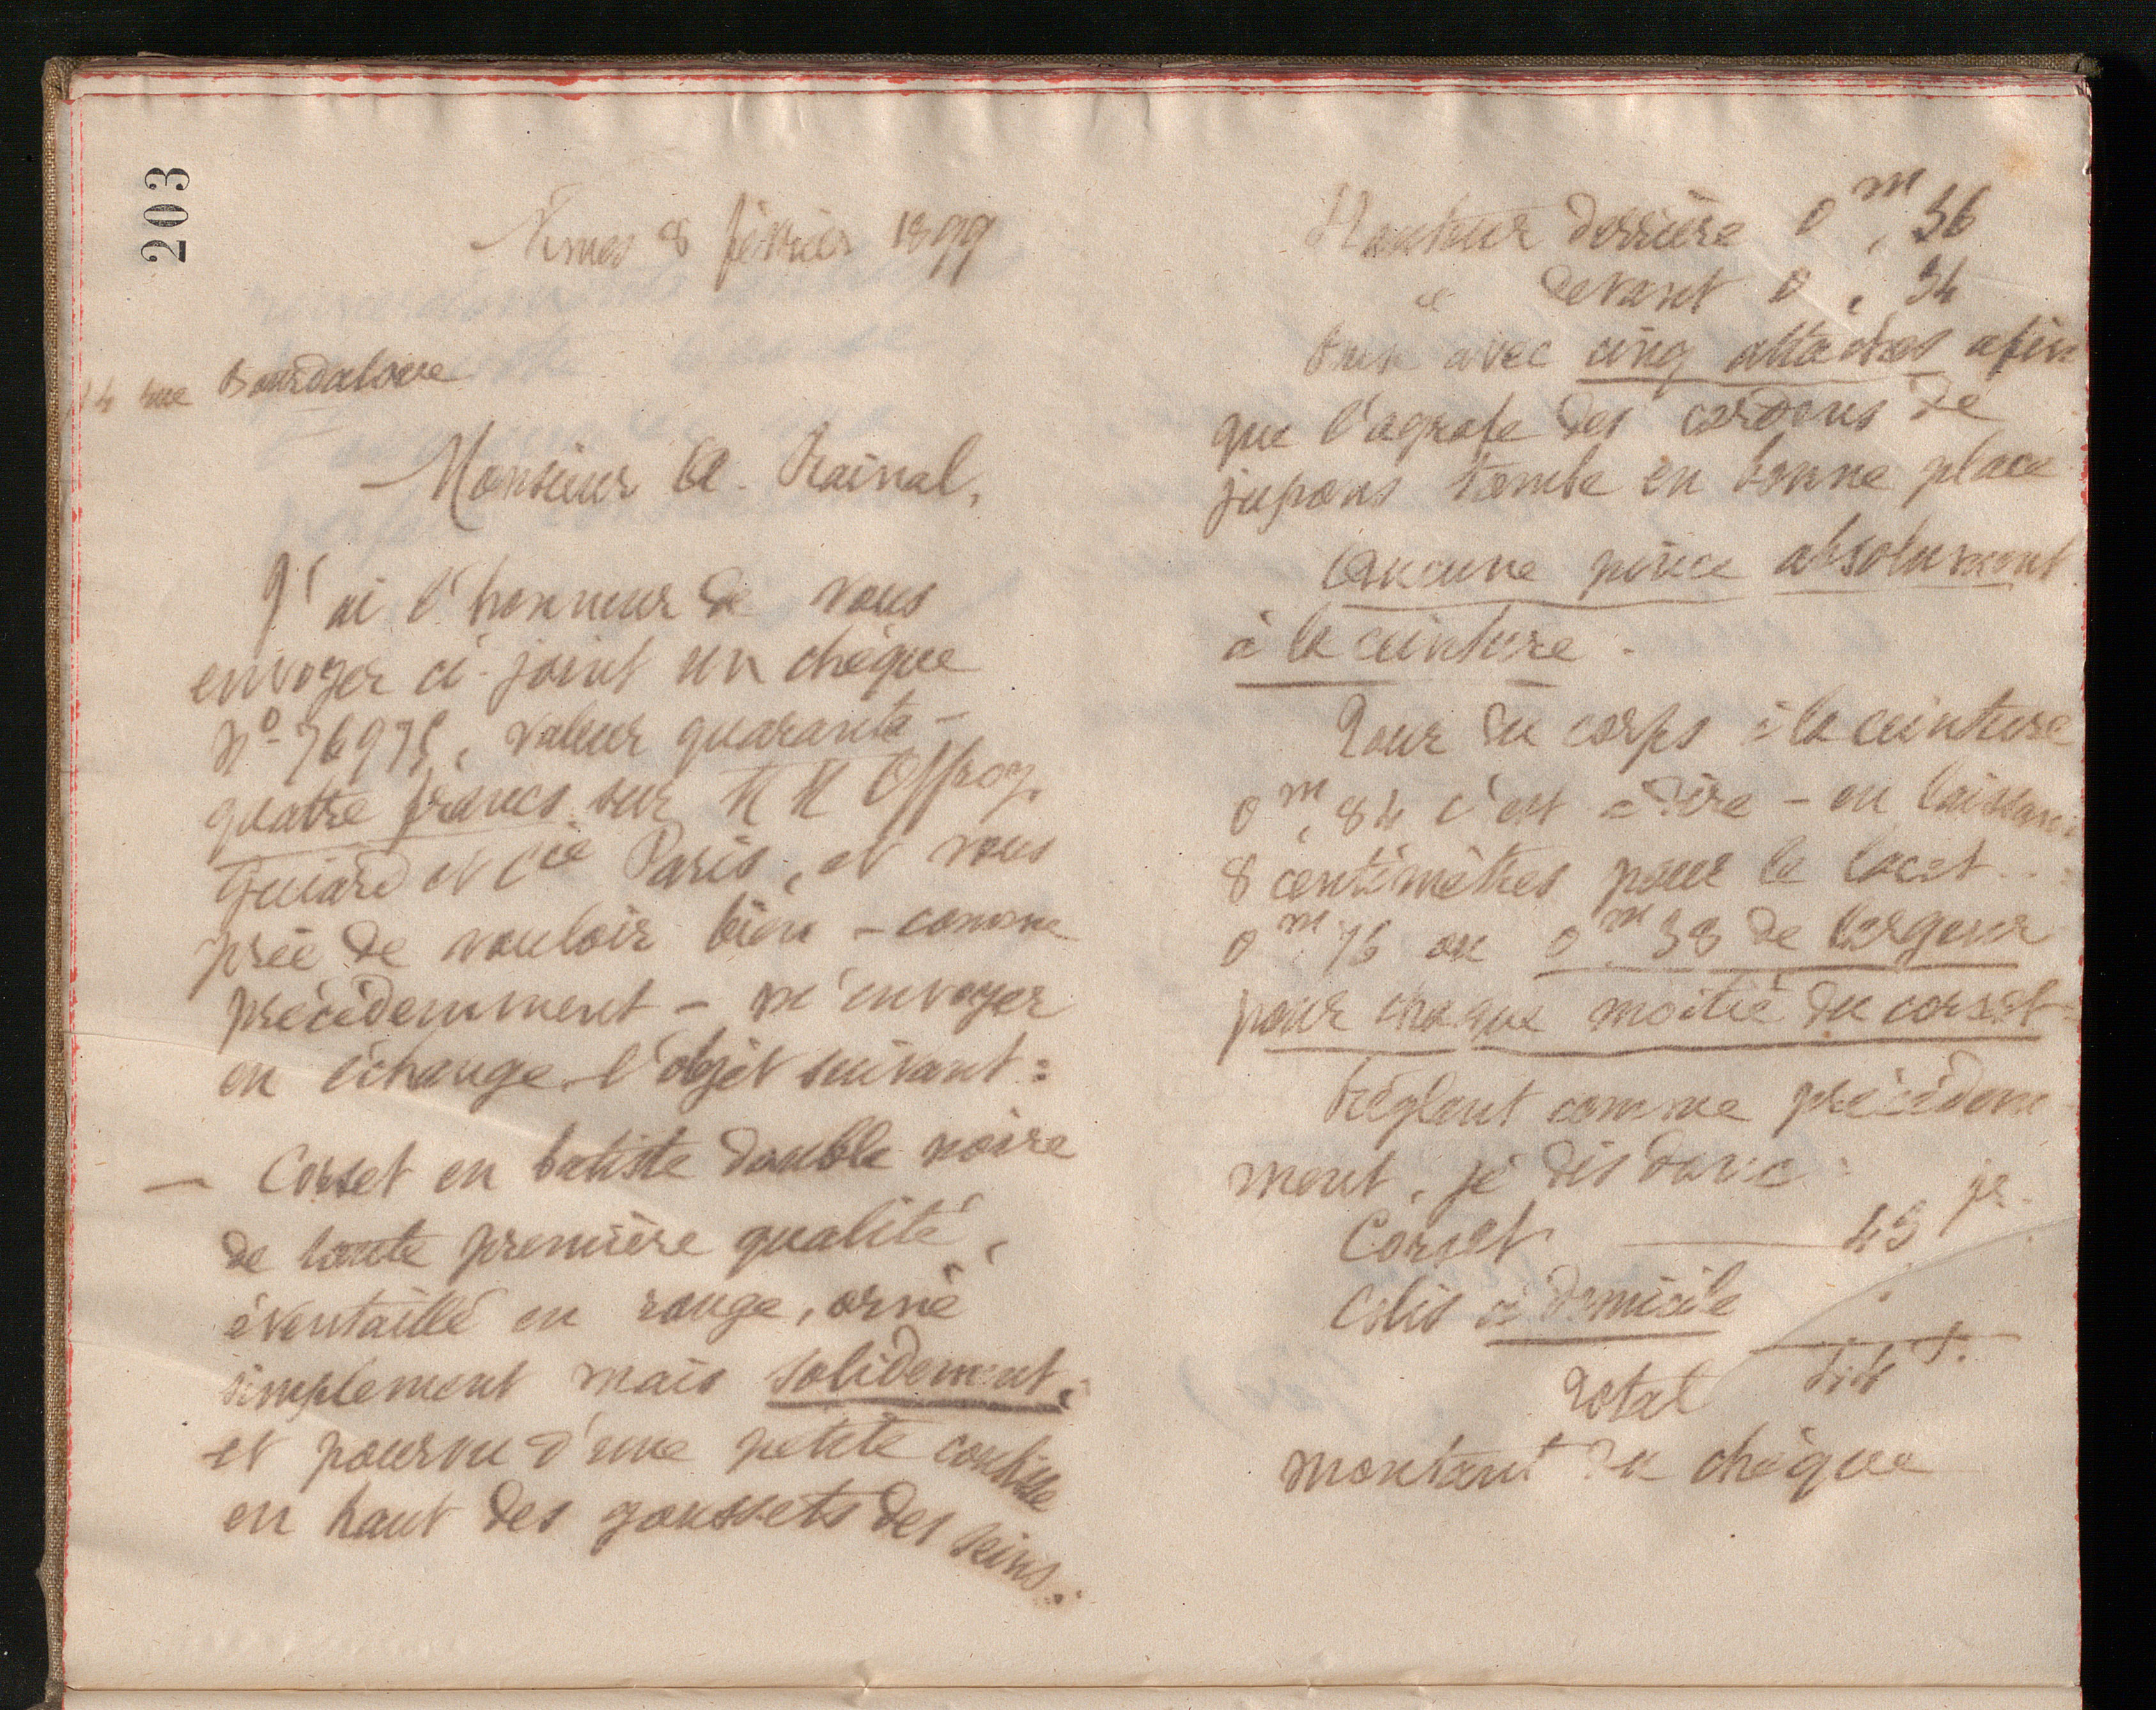 203
Nîmes 8 février 1899
14 rue Bourdaloue
Monsieur A. Rainal,
J'ai l'honneur de vous
envoyer ci-joint un chèque
No 76975, valeur quarante-
quatre francs sur MM Offroy,
Guiard et Cie Paris, et vous
prie de vouloir bien - comme
précédemment - m'envoyer
en échange l'objet suivant :
— Corset en batiste double noire
de toute première qualité,
éventaillé en rouge, orné
simplement mais solidement,
et pourvu d'une petite coulisse
en haut des goussets des seins.
Hauteur derrière 0m,36
devant 0, 34
avec cinq attaches afin
que l'agrafe des cordons de
jupons tombe en bonne place
Aucune pince absolument
à la ceinture.
Tour du corps à la ceinture
0m,84 c'est à dire - en laissant
8 centimètres pour le lacet..
0m.76 ou 0m38 de largeur
pour chaque moitié du corset
Réglant comme précédem
ment, je dis donc :
Corset — 43 fr.
Colis à domicile
Total 44 f.
montant du chèque